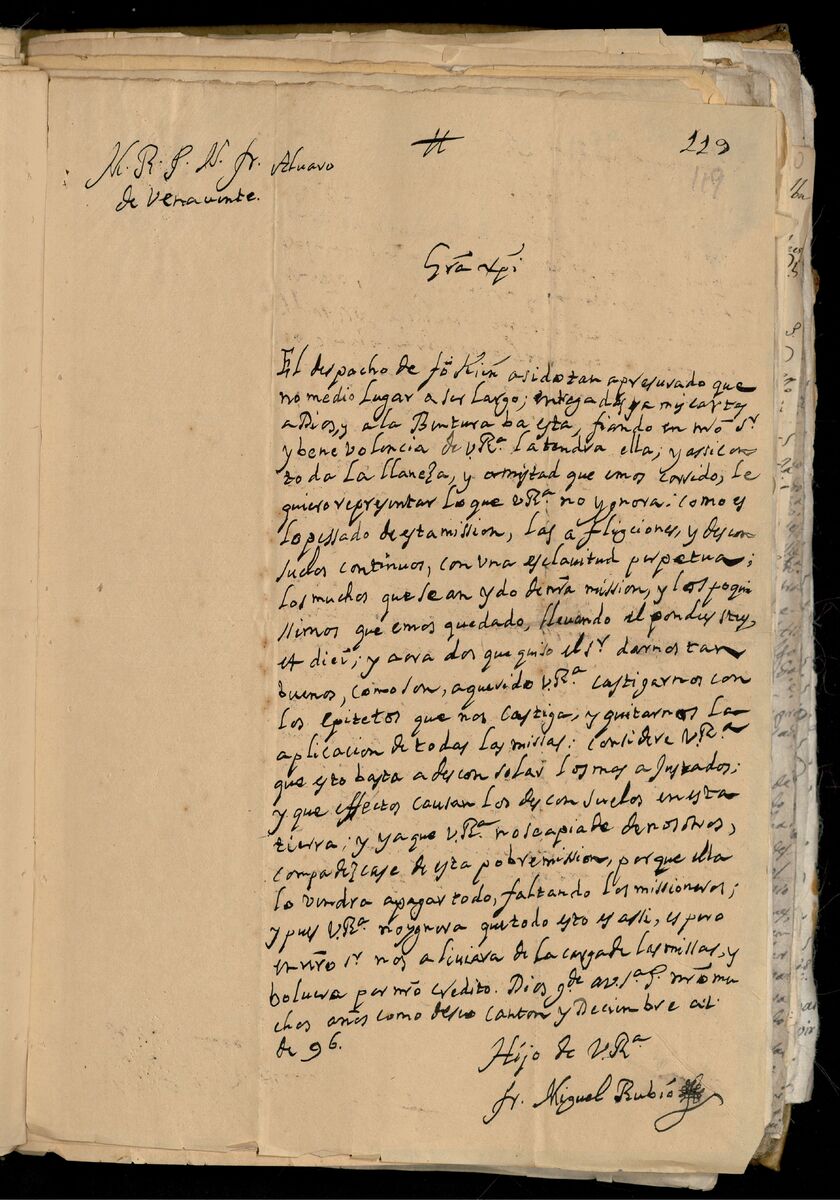 M. R. P. N. fr. Alvaro
de Venavente.
119
119
Gr̃a Xp̃i
El despacho de fõ Kiẽ a sido tan apresurado que
no me dio lugar a ser largo; entregadas ya mis cartas
a Dios, y a la Bentura ba esta, fiando en nr̃o Sr.
y benevolencia de V.Rª. la tendra ella; y assi con
toda la llaneza, y amistad que emos corrido, le
quiero representar lo que V.Rª. no ygnora: como es
lo pessado de esta mission, las aflicciones, y descon-
suelos continuos, con una esclavitud perpetua;
los muchos que se an ydo de nr̃a mission, y los poqui
ssimos que emos quedado, llevando el pondus
et diei; y aora dos que quiso el Sr. darnos tan
buenos, como son, a querido V.Rª castigarnos con
los epitetos que nos castiga, y quitarnos la
aplicacion de todas las missas: considere V.Rª
que esto basta a desconsolar los mas ajustados;
y que effectos causan los desconsuelos en esta
tierra; y ya que V.Rª. no se apiade de nosotros,
compadezcase de esta pobre mission, porque ella
lo vendra a pagar todo, faltando los missioneros;
y pues V.Rª. no ygnora que todo esto es assi, espero
en nr̃o Sr nos aliviara de la carga de las missas, y
bolvera por nr̃o credito. Dios g.de a V.S.ª P. nr̃o mu
chos años como deseo Canton y Decienbre a 1.
de 96.
Hijo de V.Rª
fr. Miguel Rubio